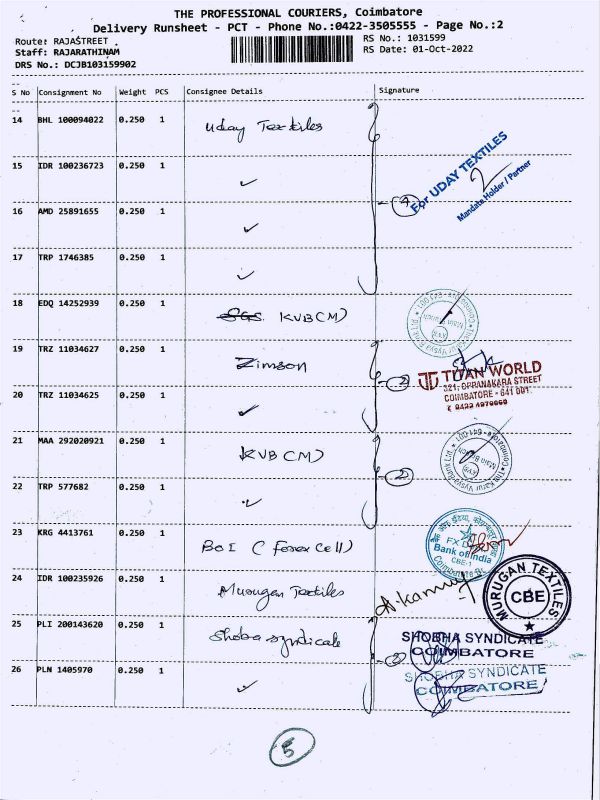 THE PROFESSIONAL COURIERS, Coimbatore
Delivery Runsheet - PCT - Phone No.:0422-3505555 - Page No.:2
Route: RAJASTREET
RS No.: 1031599
Staff: RAJARATHINAM
RS Date: 01-Oct-2022
DRS No.: DCJB103159902
S No Consignment No Weight PCS Consignee Details Signature
14 BHL 100094022 0.250 1 Uday Textiles
15 IDR 100236723 0.250 1 ✓
16 AMD 25891655 0.250 1 ✓
4
For UDAY TEXTILES
Mandate Holder / Partner
17 TRP 1746385 0.250 1 ✓
18 EDQ 14252939 0.250 1 KVB (M)
19 TRZ 11034627 0.250 1 Zimson
2
TITAN WORLD
321, OPPANAKARA STREET
COIMBATORE - 641 001.
20 TRZ 11034625 0.250 1 ✓
21 MAA 292020921 0.250 1 KVB (M)
2
22 TRP 577682 0.250 1 ✓
23 KRG 4413761 0.250 1 BOI (Forex Cell)
Bank of India
CBE-1
24 IDR 100235926 0.250 1 Murugan Textiles
MURUGAN TEXTILES
CBE
25 PLI 200143620 0.250 1 Shoba Syndicate
2
SHOBHA SYNDICATE
COIMBATORE
26 PLN 1405970 0.250 1 ✓
SHOBHA SYNDICATE
COIMBATORE
5